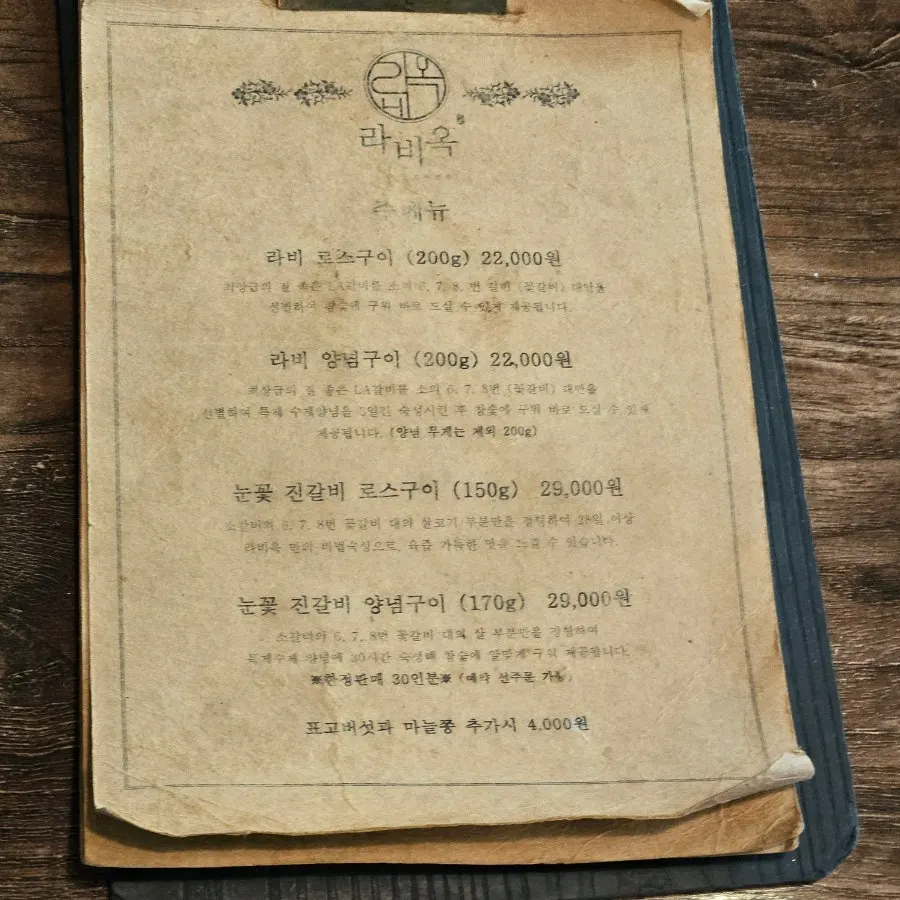 라비옥
라비옥
주메뉴
라비 로스구이 (200g) 22,000원
최상급의 질 좋은 LA갈비를 소의 6, 7, 8, 번 갈비 (꽃갈비) 대만을
선별하여 참숯에 구워 바로 드실 수 있게 제공됩니다.
라비 양념구이 (200g) 22,000원
최상급의 질 좋은 LA갈비를 소의 6, 7, 8번 (꽃갈비) 대만을
선별하여 특제 수제양념을 3일간 숙성시킨 후 참숯에 구워 바로 드실 수 있게
제공됩니다. (양념 무게는 제외 200g)
눈꽃 진갈비 로스구이 (150g) 29,000원
소갈비의 6, 7, 8번 꽃갈비 대의 살코기 부분만을 정형하여 28일 이상
라비옥 만의 비법숙성으로, 육즙 가득한 맛을 느낄 수 있습니다.
눈꽃 진갈비 양념구이 (170g) 29,000원
소갈비의 6, 7, 8번 꽃갈비 대의 살 부분만을 정형하여
특제수제 양념에 30시간 숙성해 참숯에 알맞게 구워 제공됩니다.
※한정판매 30인분※ (예약 선주문 가능)
표고버섯과 마늘쫑 추가시 4,000원